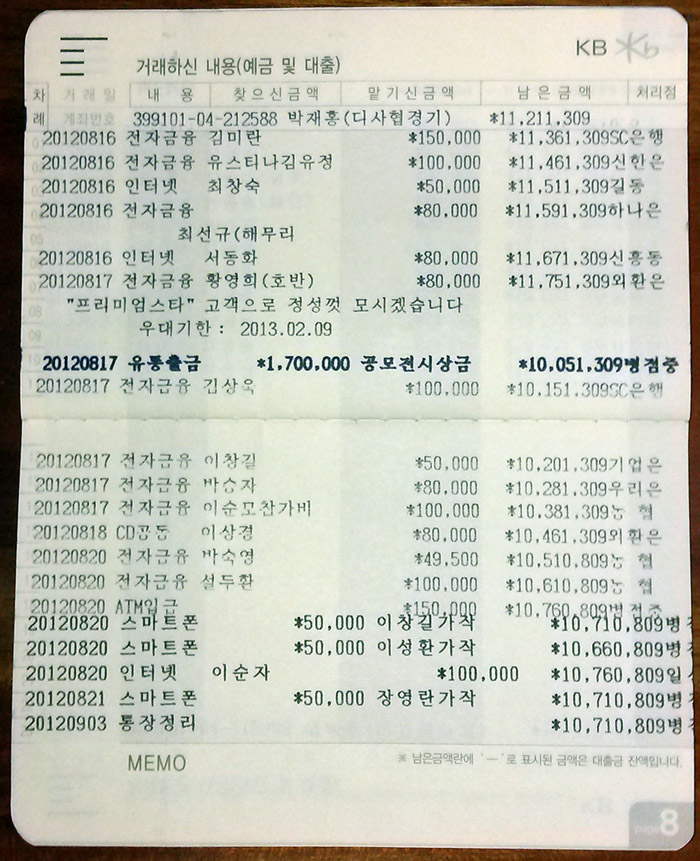 KB
거래하신 내용(예금 및 대출)
차 거래일 내 용 찾으신금액 맡기신금액 남은금액 처리점
례 계좌번호 399101-04-212588 박재홍(디사협경기) *11,211,309
20120816 전자금융 김미란 *150,000 *11,361,309SC은행
20120816 전자금융 유스티나김유정 *100,000 *11,461,309신한은
20120816 인터넷 최창숙 *50,000 *11,511,309길동
20120816 전자금융 *80,000 *11,591,309하나은
최선규(해무리
20120816 인터넷 서동화 *80,000 *11,671,309신흥동
20120817 전자금융 황영희(호반) *80,000 *11,751,309외환은
"프리미엄스타" 고객으로 정성껏 모시겠습니다
우대기한 : 2013.02.09
20120817 유통출금 *1,700,000 공모전시상금 *10,051,309병점중
20120817 전자금융 김상욱 *100,000 *10,151,309SC은행
20120817 전자금융 이창길 *50,000 *10,201,309기업은
20120817 전자금융 박승자 *80,000 *10,281,309우리은
20120817 전자금융 이순모참가비 *100,000 *10,381,309농 협
20120818 CD공동 이상경 *80,000 *10,461,309외환은
20120820 전자금융 박숙영 *49,500 *10,510,809농 협
20120820 전자금융 설두환 *100,000 *10,610,809농 협
20120820 ATM입금 *150,000 *10,760,809병점중
20120820 스마트폰 *50,000 이창길가작 *10,710,809병
20120820 스마트폰 *50,000 이성환가작 *10,660,809병
20120820 인터넷 이순자 *100,000 *10,760,809일
20120821 스마트폰 *50,000 장영란가작 *10,710,809병
20120903 통장정리 *10,710,809병
MEMO
※ 남은금액란에 '―'로 표시된 금액은 대출금 잔액입니다.
page 8